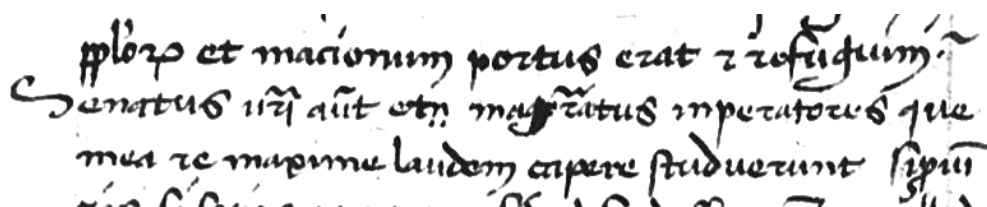 pplorum et nacionum portus erat et refugium.
Senatus nri aut etn magratus inperatores que
mea re maxime laudem capere studuerunt si